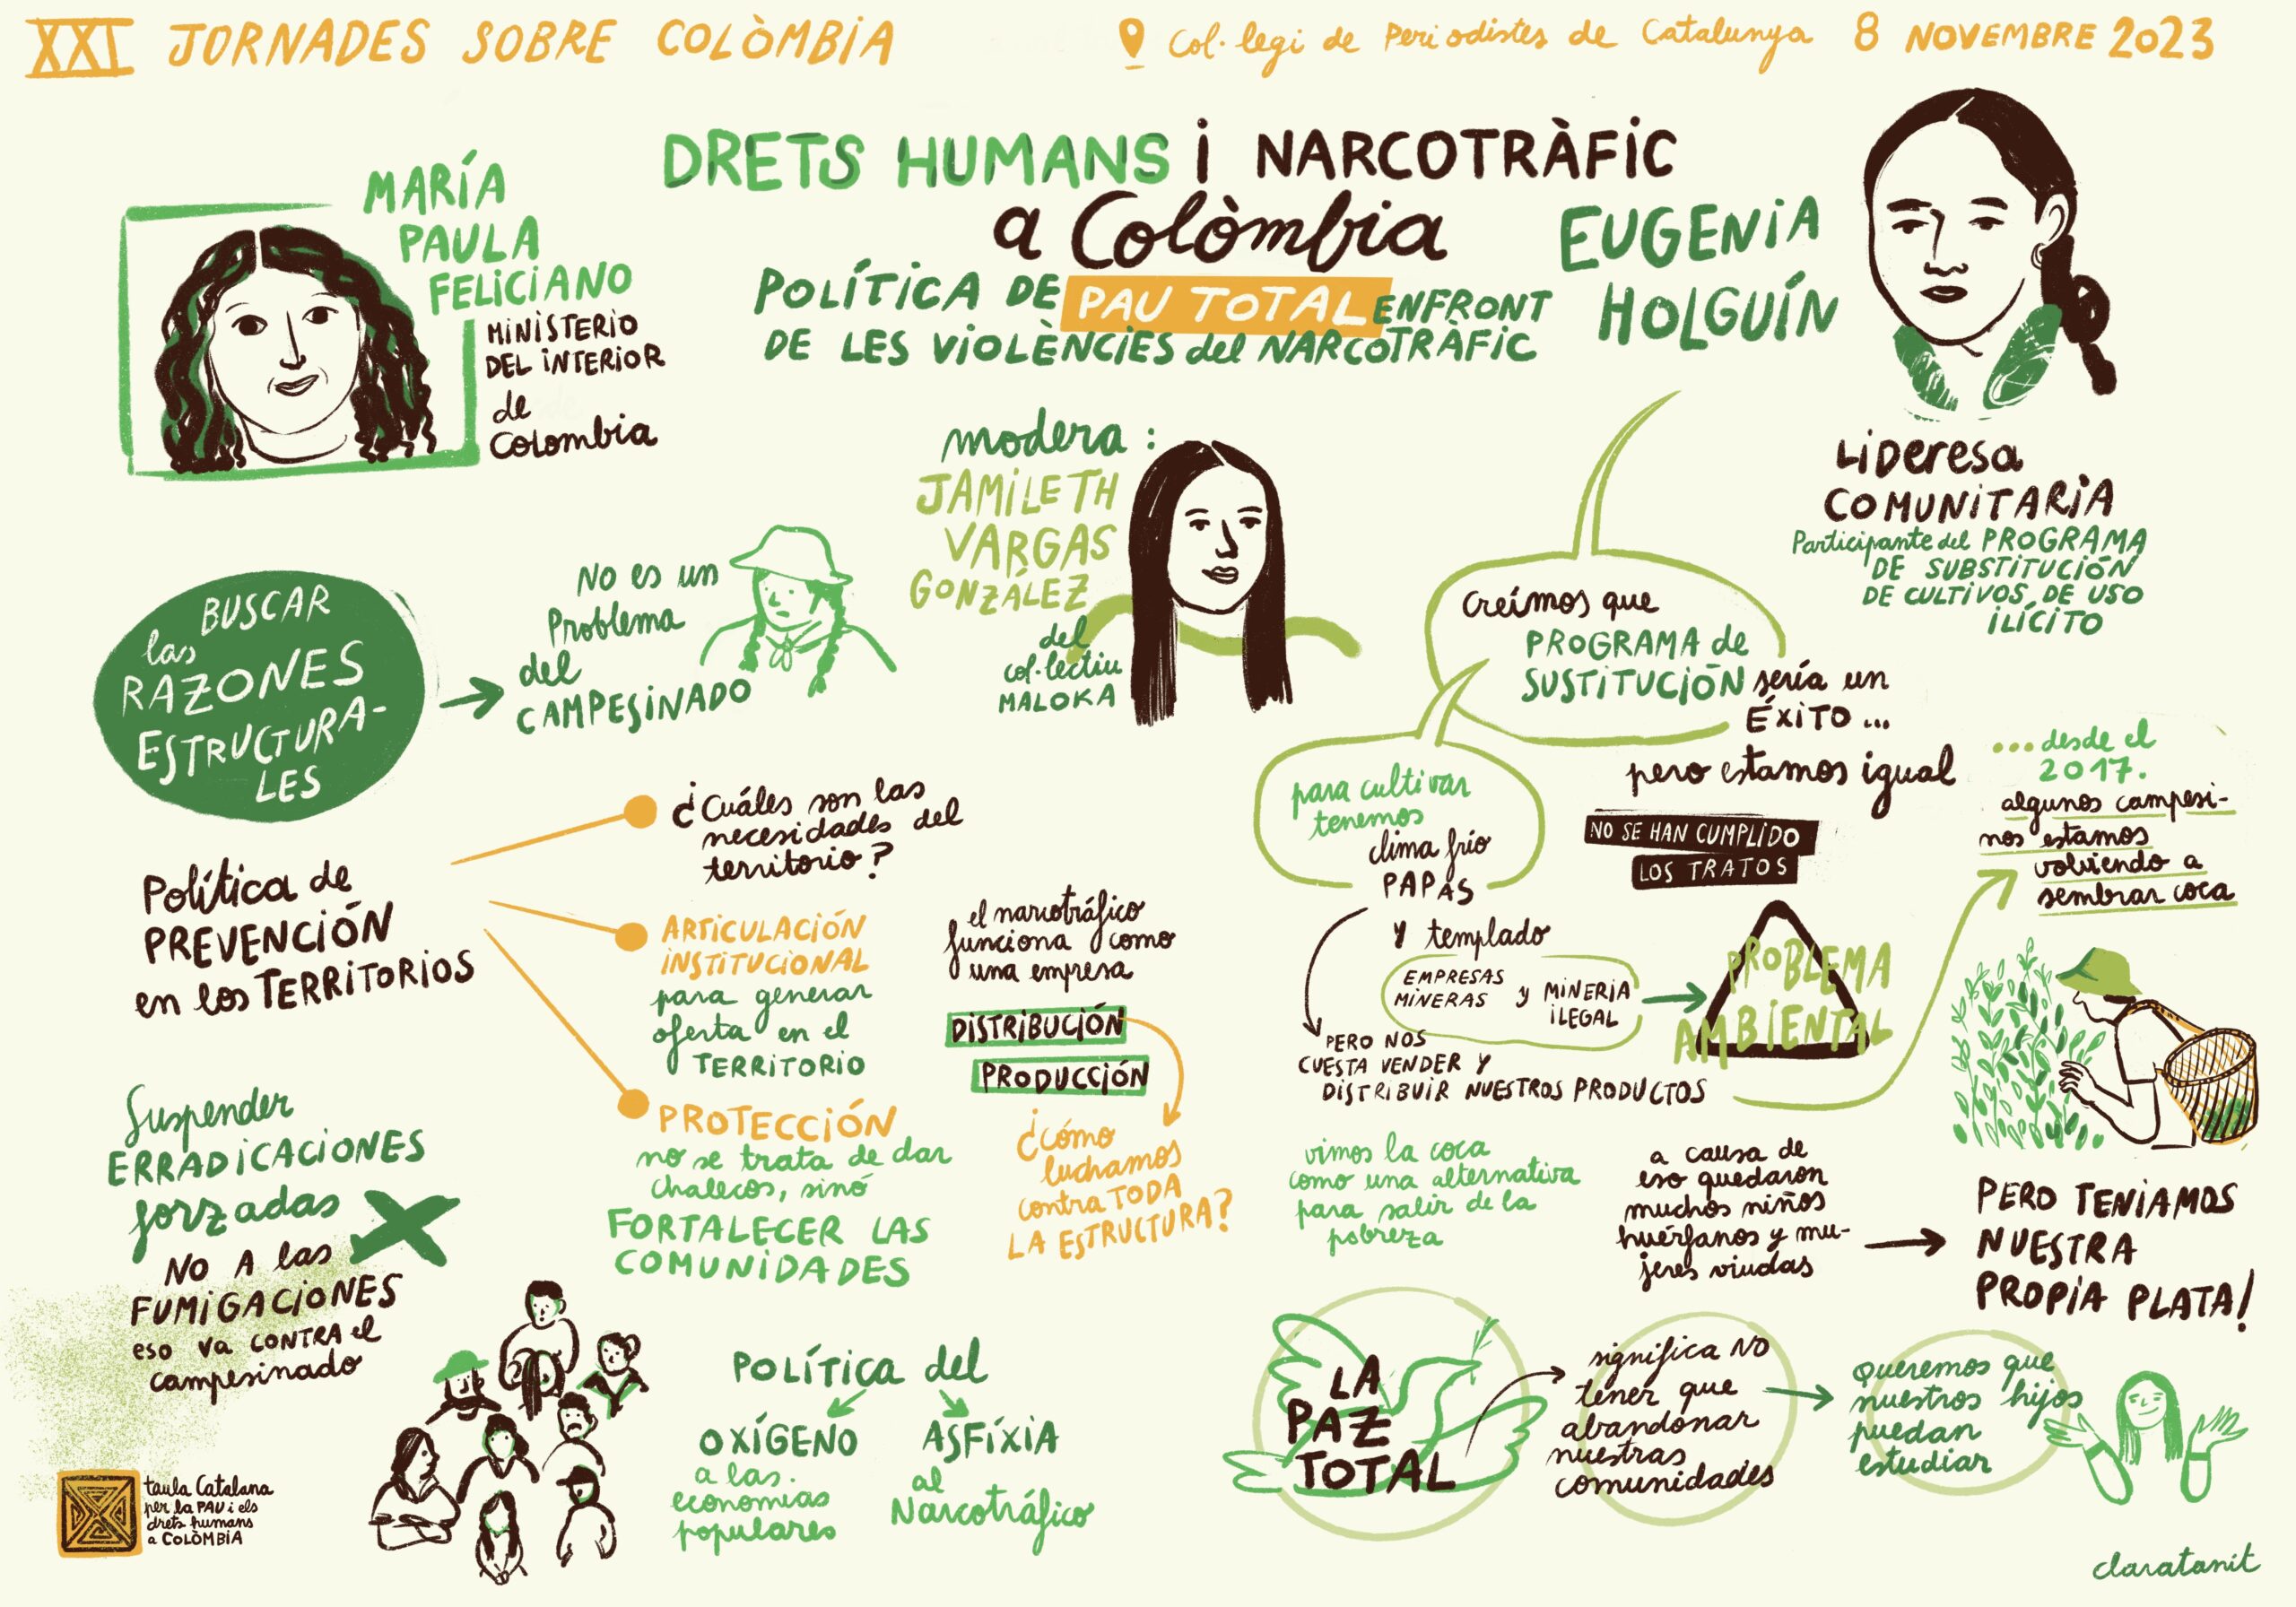 XXI JORNADES SOBRE COLÒMBIA
Col·legi de Periodistes de Catalunya 8 NOVEMBRE 2023
DRETS HUMANS i NARCOTRÀFIC
a Colòmbia
POLÍTICA DE PAU TOTAL ENFRONT
DE LES VIOLÈNCIES del NARCOTRÀFIC
MARÍA
PAULA
FELICIANO
MINISTERIO
DEL INTERIOR
de
Colombia
EUGENIA
HOLGUÍN
LIDERESA
COMUNITARIA
Participante del PROGRAMA
DE SUBSTITUCIÓN
DE CULTIVOS DE USO
ILÍCITO
modera:
JAMILETH
VARGAS
GONZÁLEZ
del
col·lectiu
MALOKA
BUSCAR
las
RAZONES
ESTRUCTURA-
LES
NO es un
Problema
del
CAMPESINADO
Política de
PREVENCIÓN
en los TERRITORIOS
¿Cuáles son las
necesidades del
territorio?
ARTICULACIÓN
INSTITUCIONAL
para generar
oferta en el
TERRITORIO
PROTECCIÓN
no se trata de dar
chalecos, sinó
FORTALECER LAS
COMUNIDADES
el narcotráfico
funciona como
una empresa
DISTRIBUCIÓN
PRODUCCIÓN
¿cómo
luchamos
contra TODA
LA ESTRUCTURA?
Suspender
ERRADICACIONES
forzadas
NO A las
FUMIGACIONES
eso va CONTRA el
campesinado
POLÍTICA del
OXÍGENO
a las
economías
populares
ASFÍXIA
al
Narcotráfico
taula Catalana
per la PAU i els
drets humans
a COLÒMBIA
Creímos que
PROGRAMA de
SUSTITUCIÓN sería un
ÉXITO ...
pero estamos igual
NO SE HAN CUMPLIDO
LOS TRATOS
para cultivar
tenemos
clima frío
PAPAS
Y templado
EMPRESAS
MINERAS y MINERIA
ILEGAL
PROBLEMA
AMBIENTAL
PERO NOS
CUESTA VENDER Y
DISTRIBUIR NUESTROS PRODUCTOS
...desde el
2017.
algunos campesi-
nos estamos
volviendo a
sembrar coca
vimos la coca
como una alternativa
para salir de la
pobreza
a causa de
eso quedaron
muchos niños
huérfanos y mu-
jeres viudas
PERO TENIAMOS
NUESTRA
PROPIA PLATA!
LA
PAZ
TOTAL
significa NO
tener que
abandonar
nuestras
comunidades
Queremos que
nuestros hijos
puedan
estudiar
claratanit